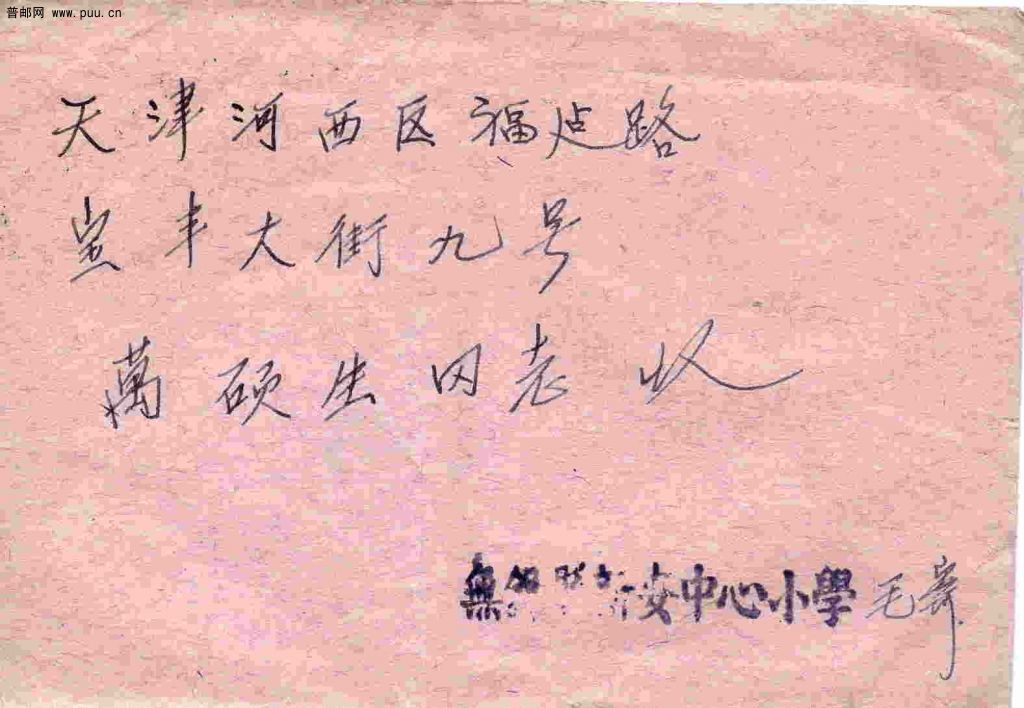 普邮网 www.puu.cn
天津河西区福建路
宝丰大街九号
萬硕生同志收
無錫 安中心小學 毛寄